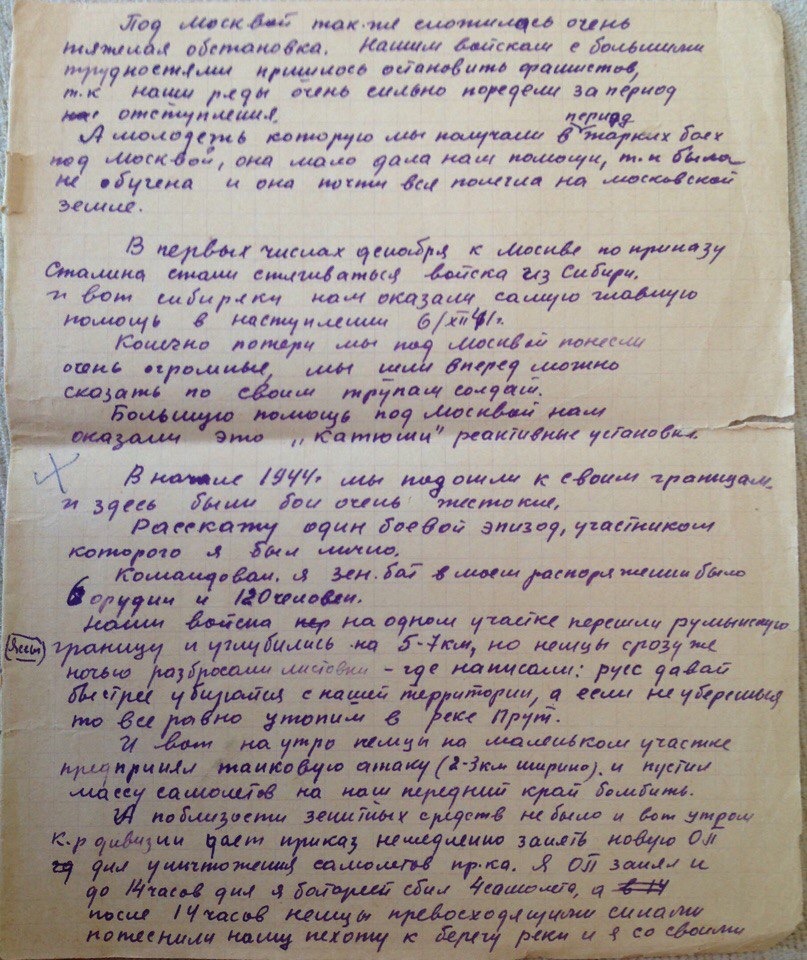 Под Москвой так-же сложилась очень
тяжелая обстановка. Нашим войскам с большими
трудностями пришлось остановить фашистов,
т.к наши ряды очень сильно поредели за период
отступления.
период
А молодежь которую мы получали в жарких боех
под Москвой, она мало дала нам помощи, т.к была
не обучена и она почти вся полегла на московской
земле.
В первых числах декабря к Москве по приказу
Сталина стали стягиваться войска из Сибири.
и вот сибиряки нам оказали самую главную
помощь в наступлении 6/XII 41г.
Конечно потери мы под Москвой понесли
очень огромные, мы шли вперед можно
сказать по своим трупам солдат.
Большую помощь под Москвой нам
оказали это „Катюши" реактивные установки.
В начале 1944г мы подошли к своим границам
и здесь были бои очень жестокие.
Расскажу один боевой эпизод, участником
которого я был лично.
Командовал я зен.бат в моем распоряжении было
6 орудий и 120 человек.
Наши войска на одном участке перешли румынскую
(Яссы) границу и углубились на 5-7км, но немцы сразу же
ночью разбросали листовки - где написали: русс давай
быстрее убирайся с нашей территории, а если не уберешься
то все равно утопим в реке Прут.
И вот на утро немцы на маленьком участке
предпринял танковую атаку (2-3км ширино). и пустил
массу самолетов на наш передний край бомбить.
А поблизости зенитных средств не было и вот утром
к.р дивизии дает приказ немедленно занять новую ОП
для уничтожения самолетов пр.ка. Я ОП занял и
до 14 часов дня я батареей сбил 4 самолета, а в 14
после 14 часов немцы превосходящими силами
потеснили нашу пехоту к берегу реки и я со своими